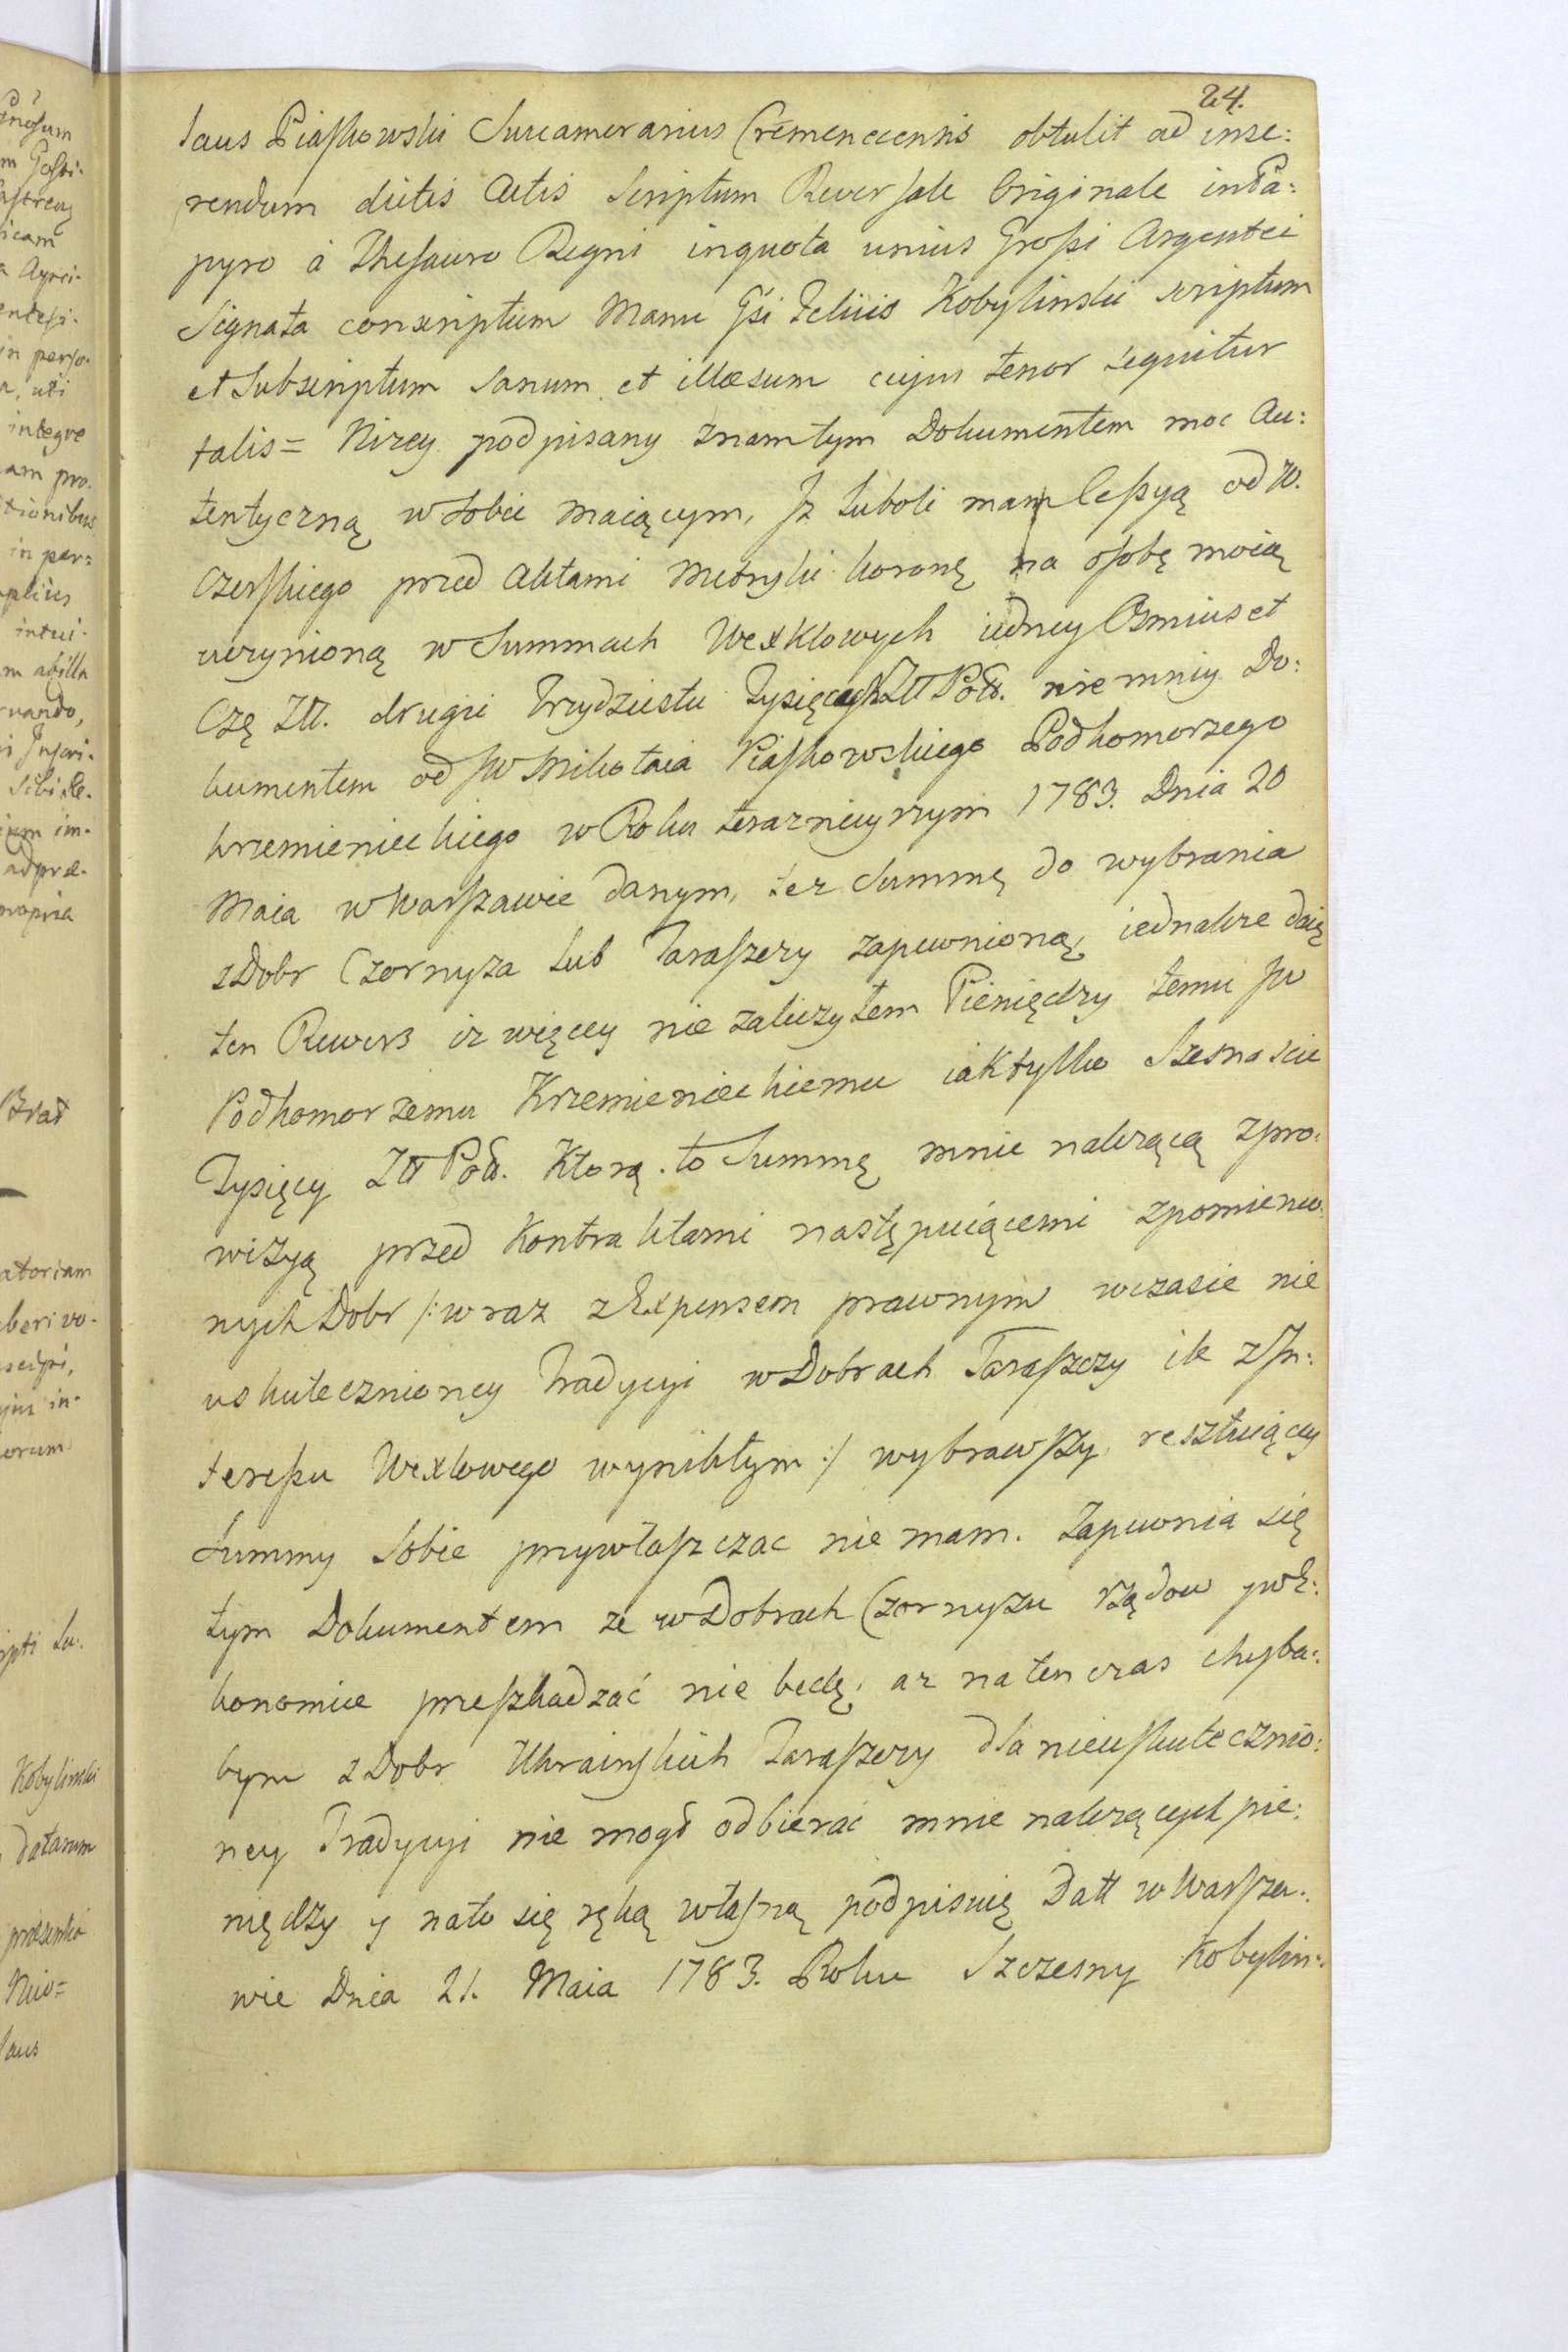 24.
laus Piaskowski Succamerarius Cremenecensis obtulit ad inse:
rendum dictis Actis Scriptum Reversale Originale in Pa:
pyro à Thesauro Regni in quota unius Grossi Argentei
Signata conscriptum Manu Gsi Felicis Kobylinski scriptum
et Subscriptum Sanum et illæsum cujus tenor sequitur
talis = Nizey podpisany znam tym Dokumentem moc Au:
tentyczną w Sobie maiącym, Iż luboli mam Cessyą od W.
Czerskiego przed Aktami Metryki koronę na osobę moią
uczynioną w Summach Wexklowych iedney Osmiuset
Czę Złł. drugiey Trzydziestu Tysięcach Złł Pols. nie mniey Do:
kumentem od JW Mikołaia Piaskowskiego Podkomorzego
krzemienieckiego w Roku terazniejyszym 1783. Dnia 20
Maia w Warszawie danym, też Summę do wybrania
z Dobr Czornyza lub Taraszczy zapewnioną, iednakże daię
ten Rewers iż więcey nie zaliczyłem Pieniędzy temu JW
Podkomorzemu Krzemienieckiemu iak tylko Szesnascie
Tysięcy Złł Pols. Ktorą to Summę mnie należącą z pro:
wizyą przed Kontraktami następuiącemi z pomienio:
nych Dobr /: wraz z Expensem prawnym w czasie nie
uskutecznioney Tradycyi w Dobrach Taraszczy ile z In:
teressu Wexlowego wynikłym :/ wybrawszy, resztuiącey
Summy Sobie przywłaszczac nie mam. Zapewnia się
tym Dokumentem ze w Dobrach Czornyzu rządow y w E:
konomice przeszkadzać nie będę, aż na ten czas chyba:
bym z Dobr Ukrainskich Taraszczy dla nieuskutecznio:
ney Tradycyi nie mogł odbierać mnie należących pie:
niędzy y na to się ręką własną podpisuię Datt w Warsza:
wie Dnia 21. Maia 1783. Roku Szczesny Kobylin: